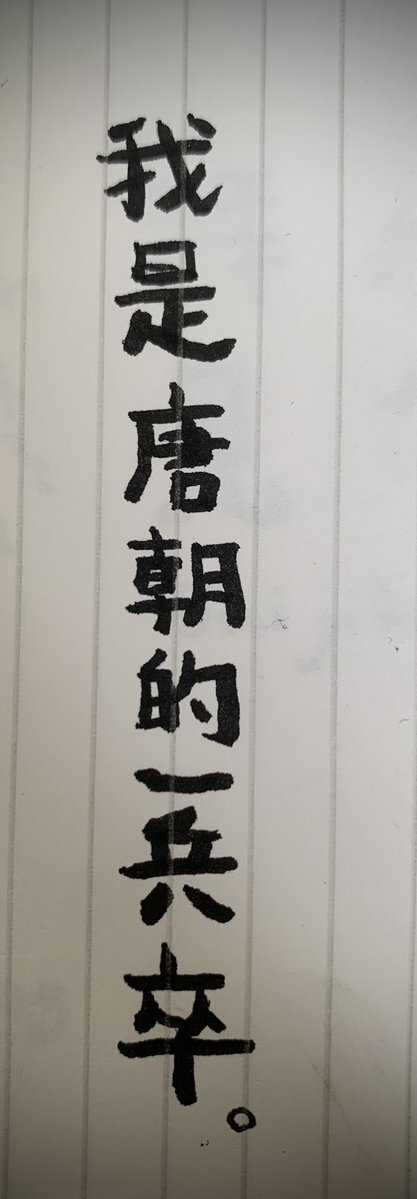 我是唐朝的一兵卒。